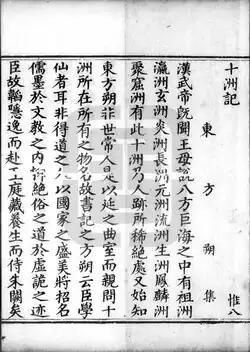 十洲記
東方朔集 惟八
漢武帝既聞王母說八方巨海之中有祖洲
瀛洲玄洲炎洲長洲元洲流洲生洲鳳麟洲
聚窟洲有此十洲乃人跡所稀絕處又始知
東方朔非世常人是以延之曲室而親問十
洲所在所有之物名故書記之方朔云臣學
仙者耳非得道之人以國家之盛美將招名
儒墨於文教之內抑絕俗之道於虛詭之迹
臣故韜隱逸而赴王庭藏養生而侍朱闕矣